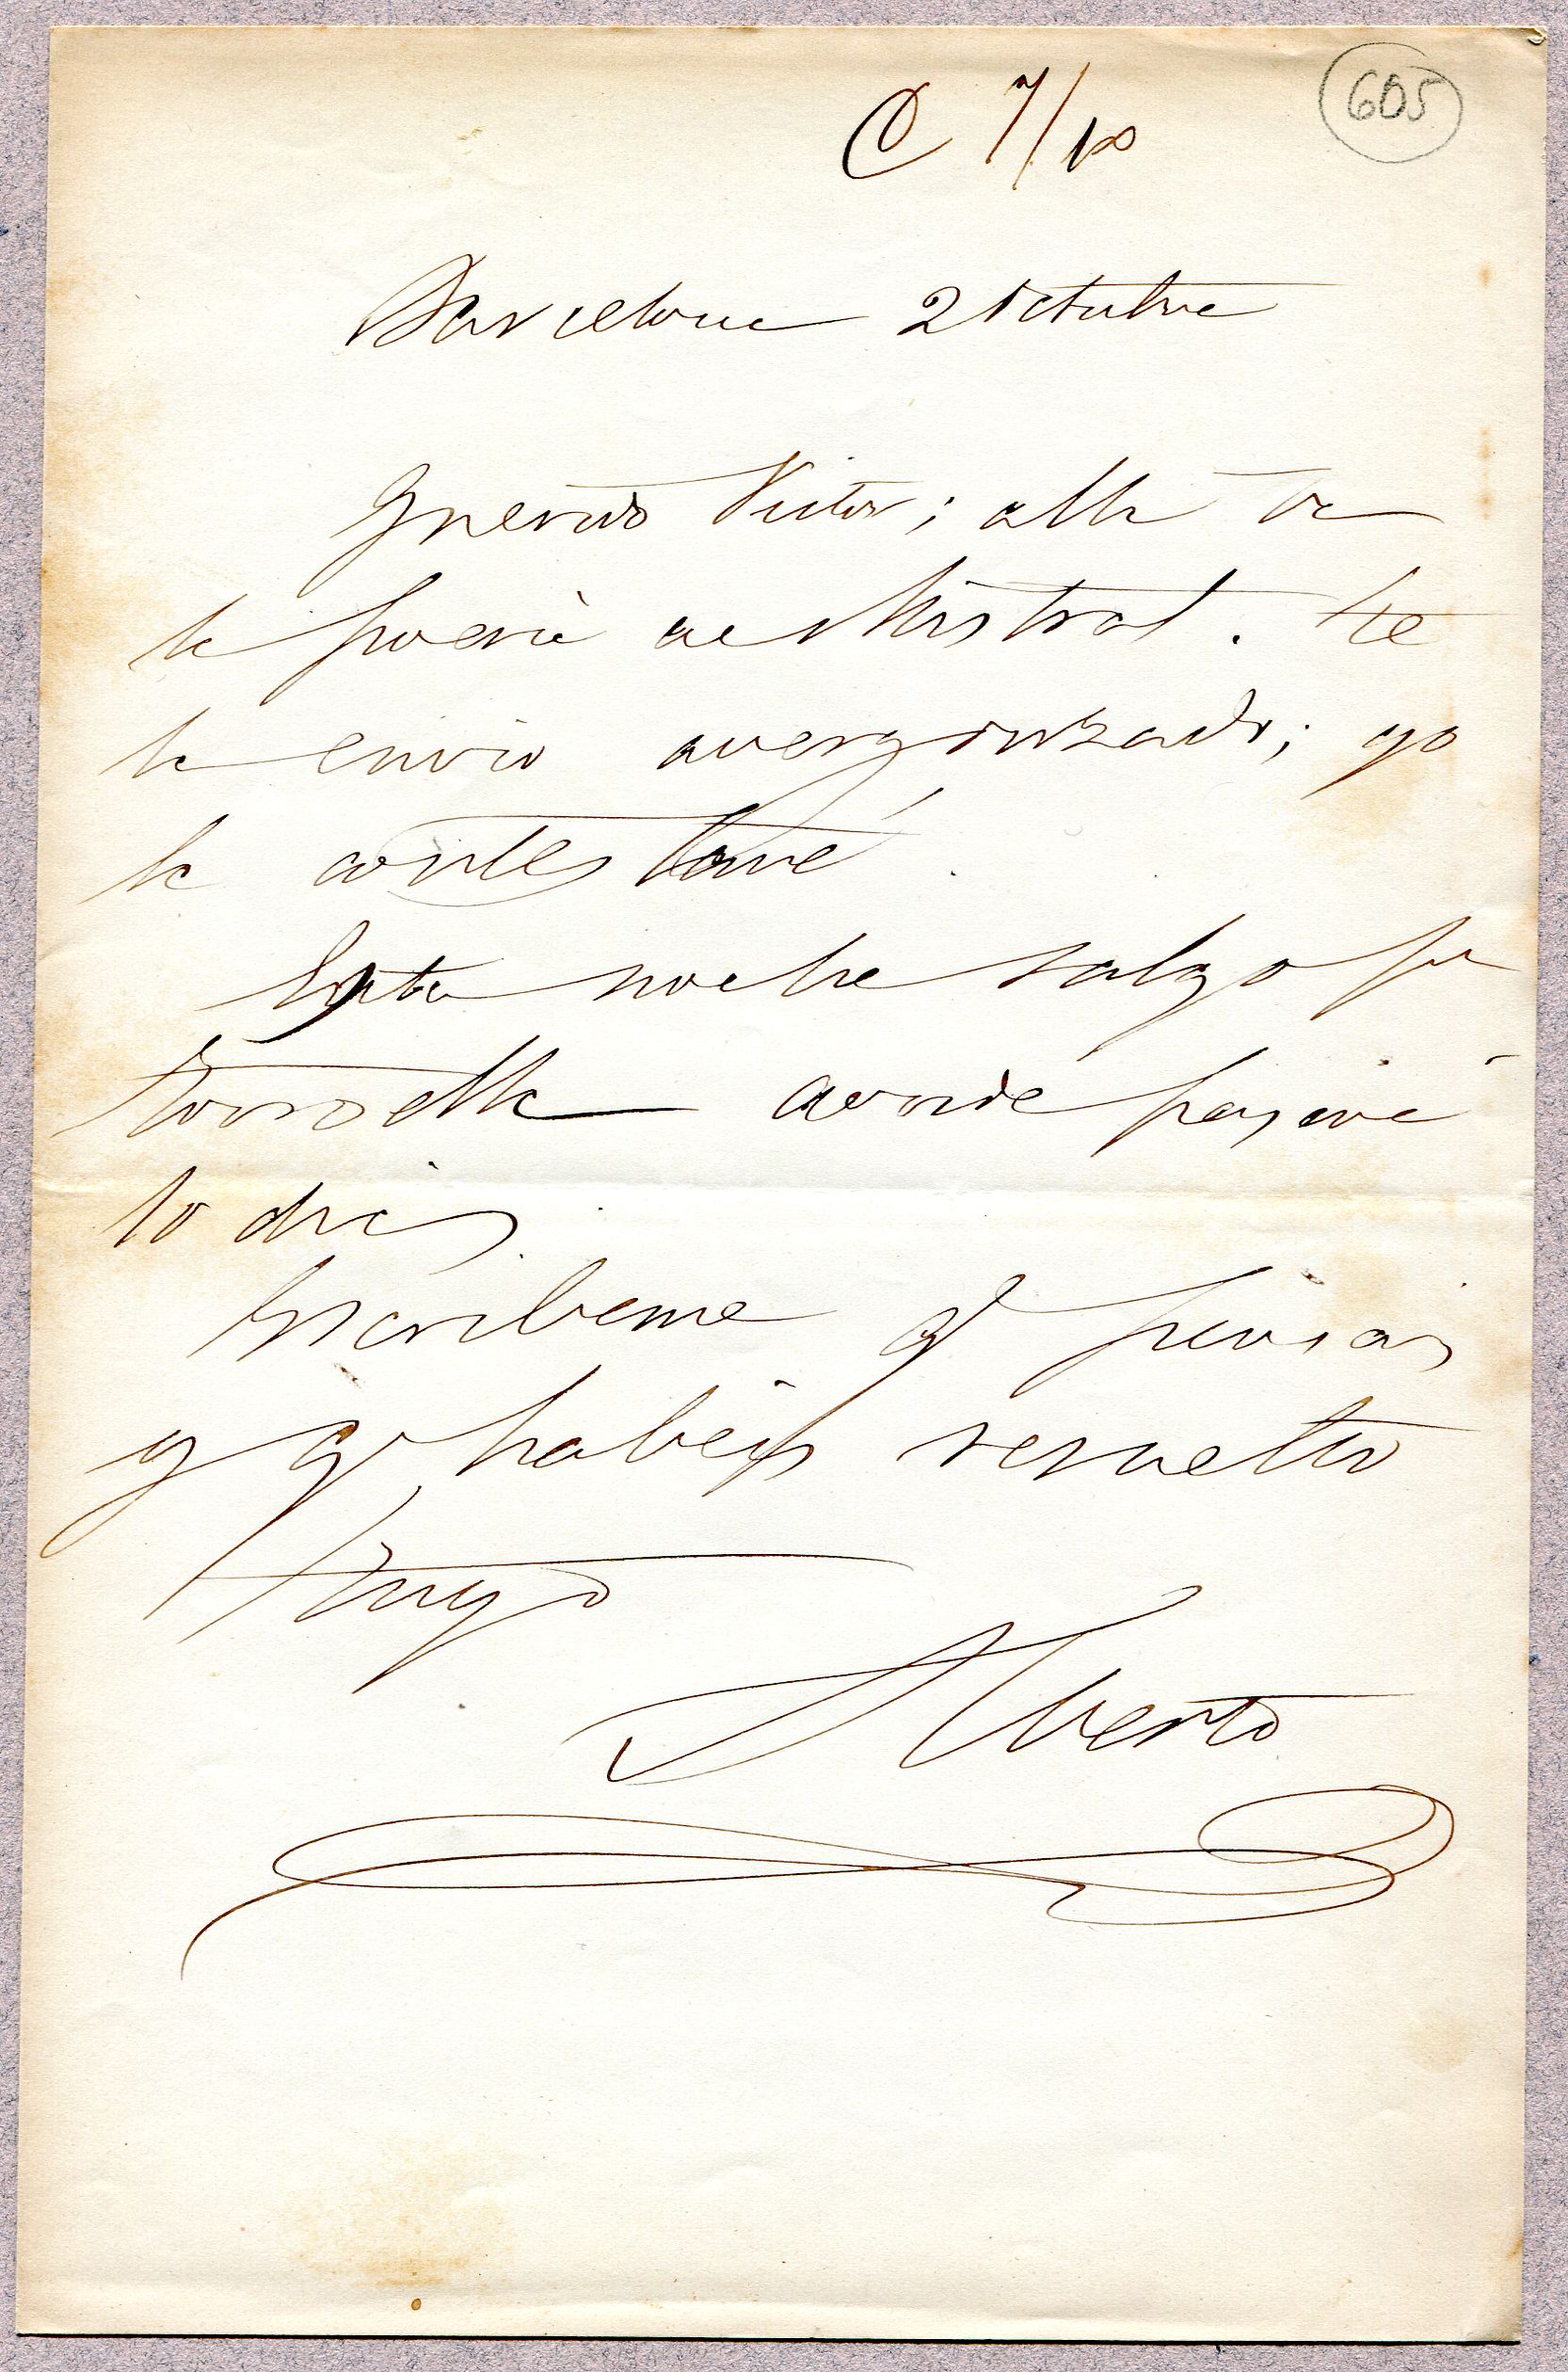 605
C 7/10
Barcelona 2 Octubre
Querido Victor; allá va
la poesia de Mistral. Te
la envio avergonzado; yo
le contestaré.
Esta noche salgo pª
Torroella donde pasaré
10 dias.
Escribeme qᵉ piensas
y qᵉ habeis resuelto
Tuyo
Alberto